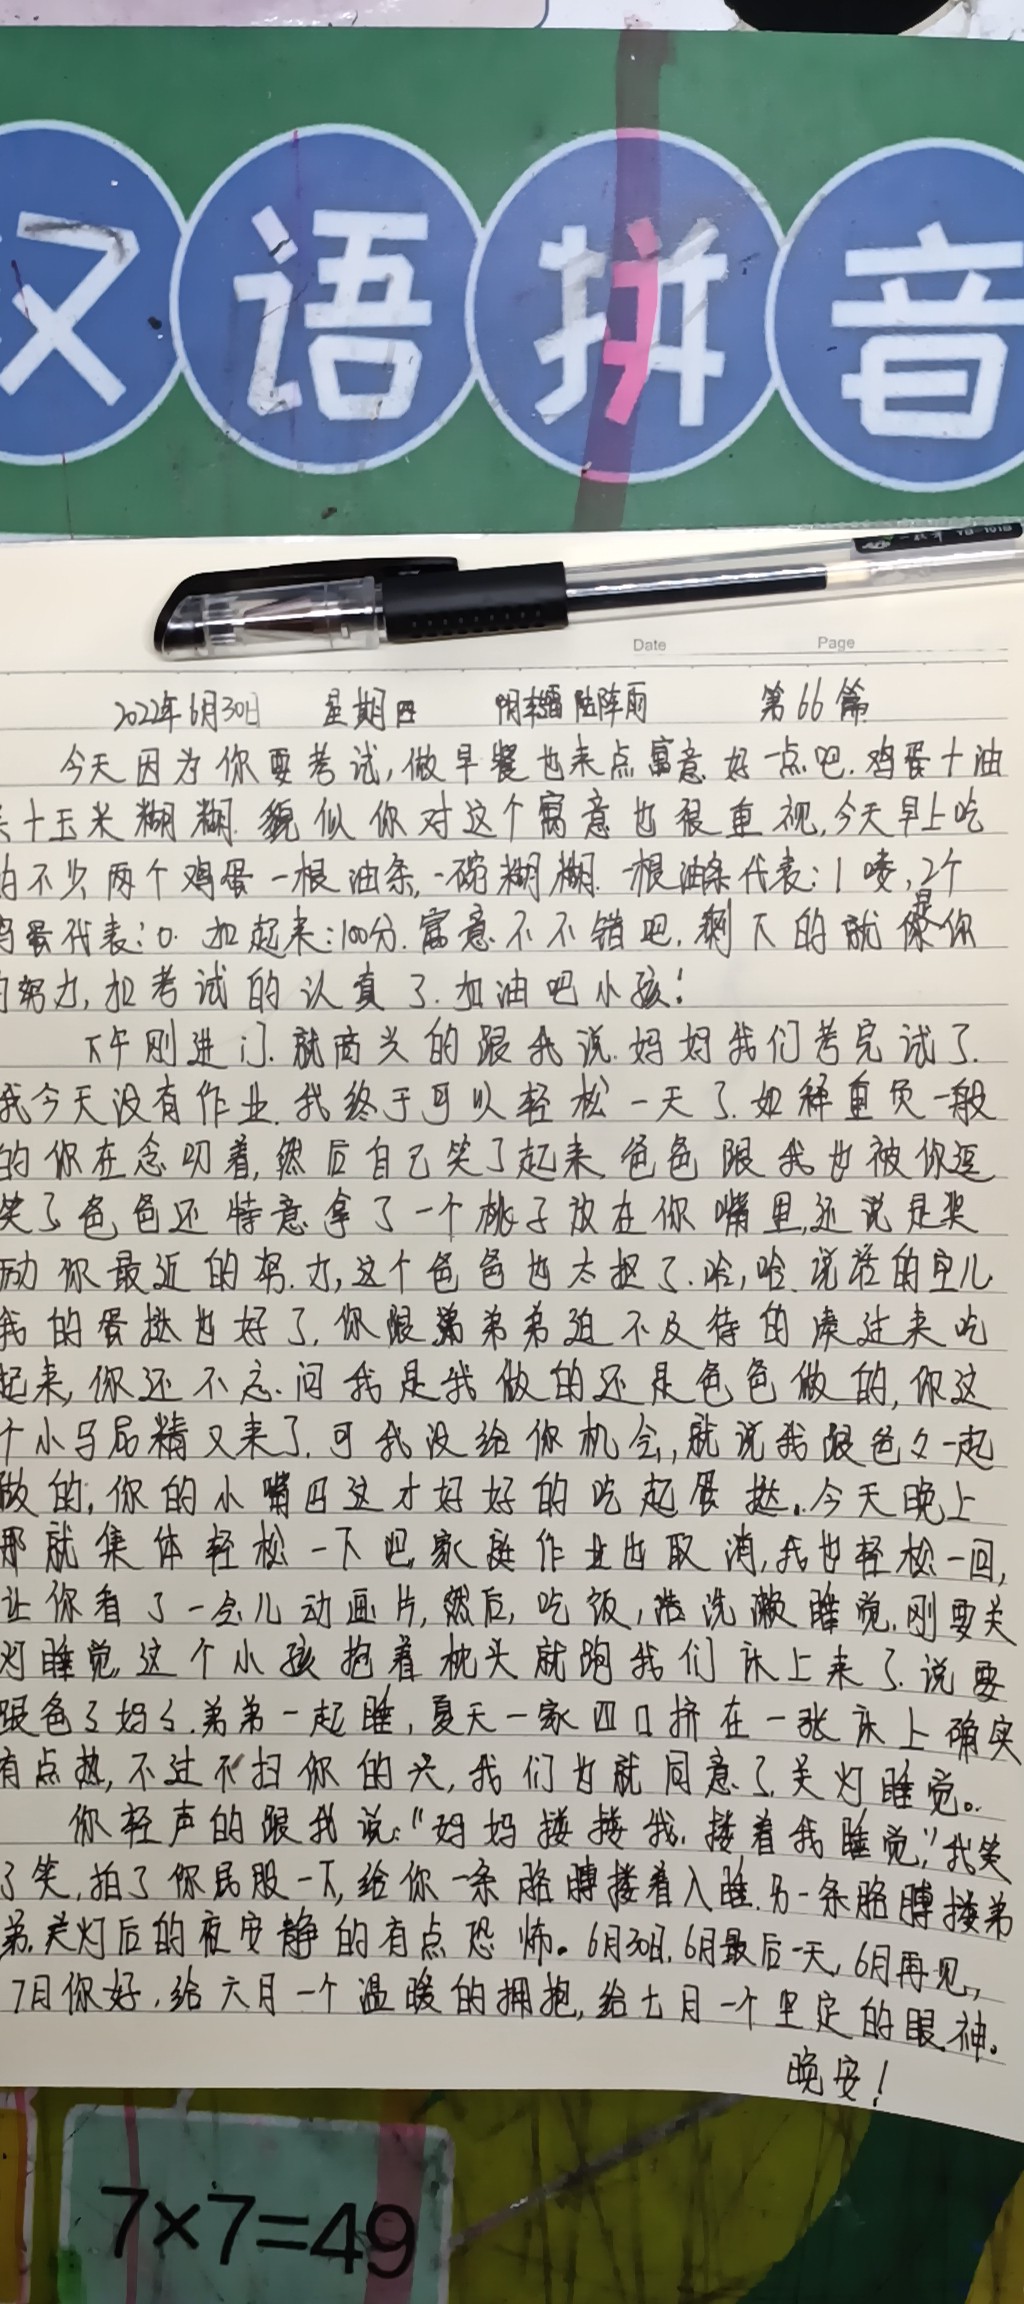 汉语拼音
Date Page
2022年6月30日 星期四 阴转雷阵雨 第66篇
今天因为你要考试,做早餐也来点寓意好一点吧.鸡蛋+油
+玉米糊糊.貌似你对这个寓意也很重视,今天早上吃
的不少两个鸡蛋一根油条,一碗糊糊.一根油条代表:1喽,2个
鸡蛋代表:0.加起来:100分.寓意不不错吧,剩下的就是你
的努力,加考试的认真了.加油吧小孩!
下午刚进门.就高兴的跟我说.妈妈我们考完试了.
我今天没有作业.我终于可以轻松一天了.如释重负一般
的你在念叨着,然后自己笑了起来.爸爸跟我也被你逗
笑了爸爸还特意拿了一个桃子放在你嘴里,还说是奖
励你最近的努力,这个爸爸也太抠了.哈,哈.说话的空儿
我的蛋挞也好了.你跟弟弟迫不及待的凑过来吃
起来,你还不忘.问我是我做的还是爸爸做的,你这
个小马屁精又来了.可我没给你机会,就说我跟爸々一起
做的,你的小嘴巴这才好好的吃起蛋挞。今天晚上
那就集体轻松一下吧,家庭作业也取消,我也轻松一回,
让你看了一会儿动画片,然后,吃饭,洗漱睡觉.刚要关
灯睡觉,这个小孩抱着枕头就跑我们床上来了.说要
跟爸々妈々.弟弟一起睡,夏天一家四口挤在一张床上确实
有点热,不过不扫你的兴,我们也就同意了.关灯睡觉。
你轻声的跟我说:"妈妈搂搂我.搂着我睡觉,"我笑
了笑,拍了你屁股一下,给你一条胳膊搂着入睡.另一条胳膊搂弟
弟.关灯后的夜安静的有点恐怖。6月30日,6月最后一天,6月再见,
7月你好.给六月一个温暖的拥抱,给七月一个坚定的眼神。
晚安!
7×7=49